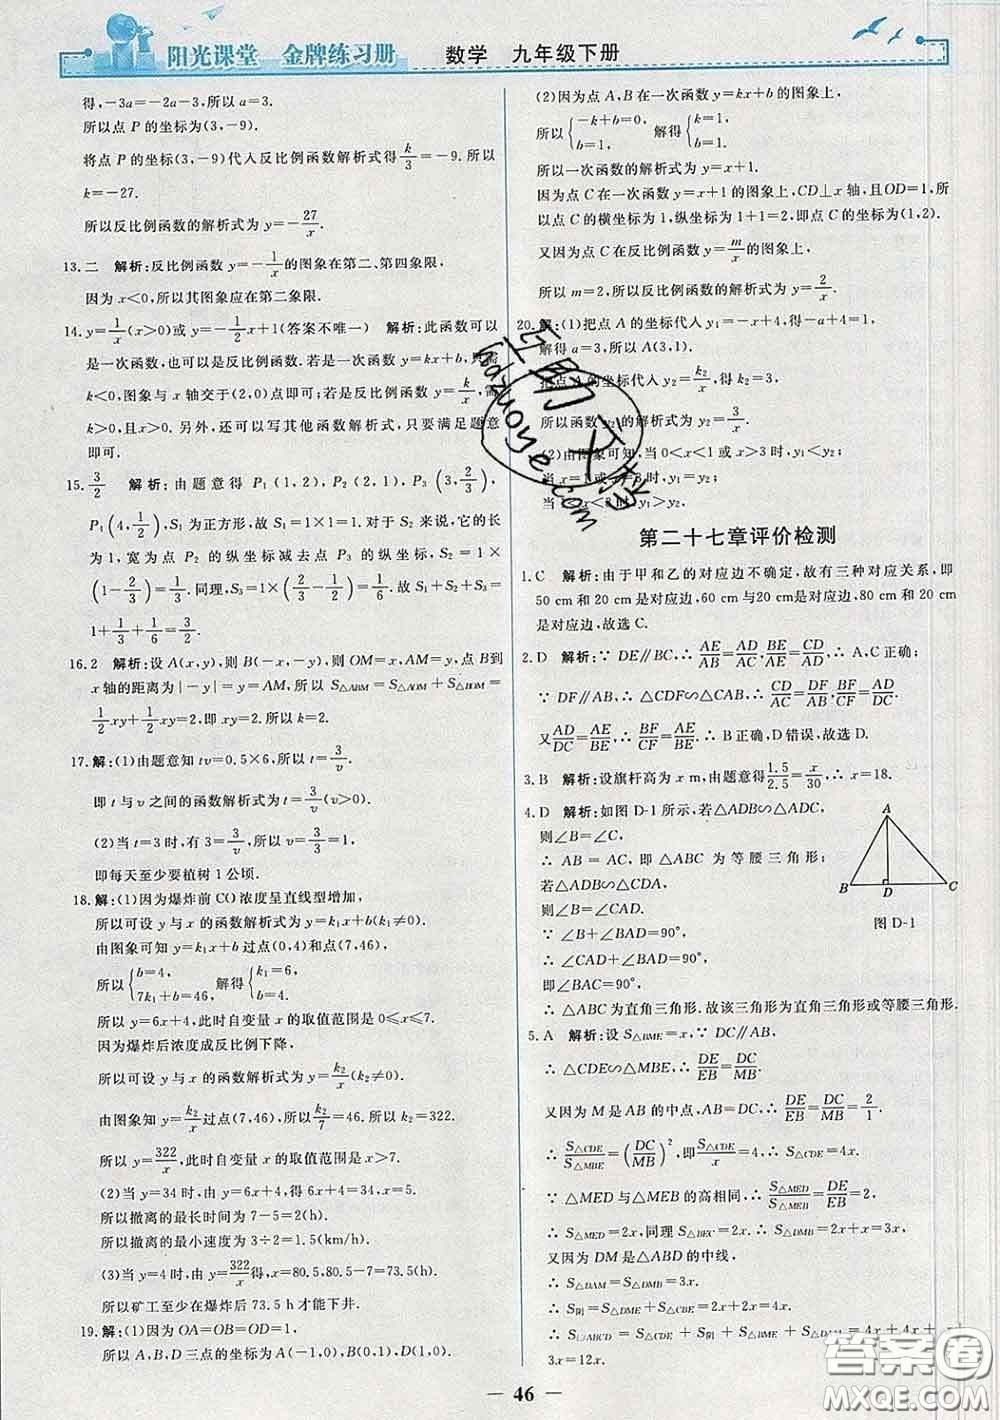 阳光课堂 金牌练习册 数学 九年级下册
得,-3a=-2a-3,所以a=3.
所以点P的坐标为(3,-9).
将点P的坐标(3,-9)代入反比例函数解析式得k/3=-9.所以
k=-27.
所以反比例函数的解析式为y=-27/x.
13.二 解析:反比例函数y=-1/x的图象在第二、第四象限,
因为x<0,所以其图象应在第二象限.
14.y=1/x(x>0)或y=-1/2x+1(答案不唯一) 解析:此函数可以
是一次函数,也可以是反比例函数.若是一次函数y=kx+b,只需
k<0,图象与x轴交于(2,0)点即可;若是反比例函数y=k/x,需
k>0,且x>0.另外,还可以写其他函数解析式,只要满足题意
即可.
15.3/2 解析:由题意得P1(1,2),P2(2,1),P3(3,2/3),
P4(4,1/2),S1为正方形,故S1=1×1=1.对于S2来说,它的长
为1,宽为点P2的纵坐标减去点P3的纵坐标,S2=1×
(1-2/3)=1/3.同理,S3=1×(2/3-1/2)=1/6.故S1+S2+S3=
1+1/3+1/6=3/2.
16.2 解析:设A(x,y),则B(-x,-y),则OM=x,AM=y,点B到
x轴的距离为|-y|=y=AM,所以S△ABM=S△AOM+S△BOM=
1/2xy+1/2xy=2,即xy=2.所以k=2.
17.解:(1)由题意知tv=0.5×6,所以t=3/v.
即t与v之间的函数解析式为t=3/v(v>0).
(2)当t=3时,有3=3/v,所以v=1.
即每天至少要植树1公顷.
18.解:(1)因为爆炸前CO浓度呈直线型增加,
所以可设y与x的函数解析式为y=k1x+b(k1≠0).
由图象可知y=k1x+b过点(0,4)和点(7,46),
所以{b=4, 7k1+b=46. 解得{k1=6, b=4.
所以y=6x+4,此时自变量x的取值范围是0≤x≤7.
因为爆炸后浓度成反比例下降,
所以可设y与x的函数解析式为y=k2/x(k2≠0).
由图象知y=k2/x过点(7,46),所以k2/7=46.所以k2=322.
所以y=322/x,此时自变量x的取值范围是x>7.
(2)当y=34时,由y=6x+4得,6x+4=34,x=5.
所以撤离的最长时间为7-5=2(h).
所以撤离的最小速度为3÷2=1.5(km/h).
(3)当y=4时,由y=322/x得,x=80.5,80.5-7=73.5(h).
所以矿工至少在爆炸后73.5 h才能下井.
19.解:(1)因为OA=OB=OD=1,
所以A,B,D三点的坐标为A(-1,0),B(0,1),D(1,0).
(2)因为点A,B在一次函数y=kx+b的图象上,
所以{-k+b=0, b=1. 解得{k=1, b=1.
所以一次函数的解析式为y=x+1.
因为点C在一次函数y=x+1的图象上,CD⊥x轴,且OD=1,所
以点C的横坐标为1,纵坐标为1+1=2,即点C的坐标为(1,2).
又因为点C在反比例函数y=m/x的图象上,
所以m=2,所以反比例函数的解析式为y=2/x.
20.解:(1)把点A的坐标代入y1=-x+4,得-a+4=1,
解得a=3,所以A(3,1).
把点A的坐标代入y2=k2/x,得k2=3.
所以函数y2的解析式为y2=3/x.
(2)由图象可知,当0<x<1或x>3时,y1<y2;
当x=1或x=3时,y1=y2;
当1<x<3时,y1>y2.
第二十七章评价检测
1.C 解析:由于甲和乙的对应边不确定,故有三种对应关系,即
50 cm和20 cm是对应边,60 cm与20 cm是对应边,80 cm和20 cm
是对应边,故选C.
2.D 解析:∵DE∥BC,∴AE/AB=AD/AC,BE/AE=CD/AD.∴A,C正确;
∵DF∥AB,∴△CDF∽△CAB,∴CD/AC=DF/AB,BF/CF=AD/DC.
又AD/DC=AE/BE,∴BF/CF=AE/BE.∴B正确,D错误,故选D.
3.B 解析:设旗杆高为x m,由题意得1.5/2.5=x/30,∴x=18.
4.D 解析:如图D-1所示,若△ADB∽△ADC,
则∠B=∠C,
∴AB=AC,即△ABC为等腰三角形;
若△ADB∽△CDA,
则∠B=∠CAD.
∵∠B+∠BAD=90°,
∴∠CAD+∠BAD=90°,
即∠BAC=90°.
∴△ABC为直角三角形.故该三角形为直角三角形或等腰三角形.
A
B D C
图D-1
5.A 解析:设S△BME=x,∵DC∥AB,
∴△CDE∽△MBE,∴DE/EB=DC/MB.
又因为M是AB的中点,AB=DC,∴DE/EB=DC/MB=2/1.
∴S△CDE/S△MBE=(DC/MB)²,即S△CDE/x=4,∴S△CDE=4x.
∵△MED与△MEB的高相同,∴S△MED/S△MEB=DE/EB=2,
∴S△MED=2x,同理S△BEC=2x.∴S△DMB=2x+x=3x.
又因为DM是△ABD的中线,
∴S△DAM=S△DMB=3x.
∴S阴=S△DME+S△CBE=2x+2x=4x.
∴S□ABCD=S△CDE+S阴+S△BME+S△DAM=4x+4x+x+
3x=12x.
46
互助文档
hdzuoye.com
答案圈
MXQE.COM